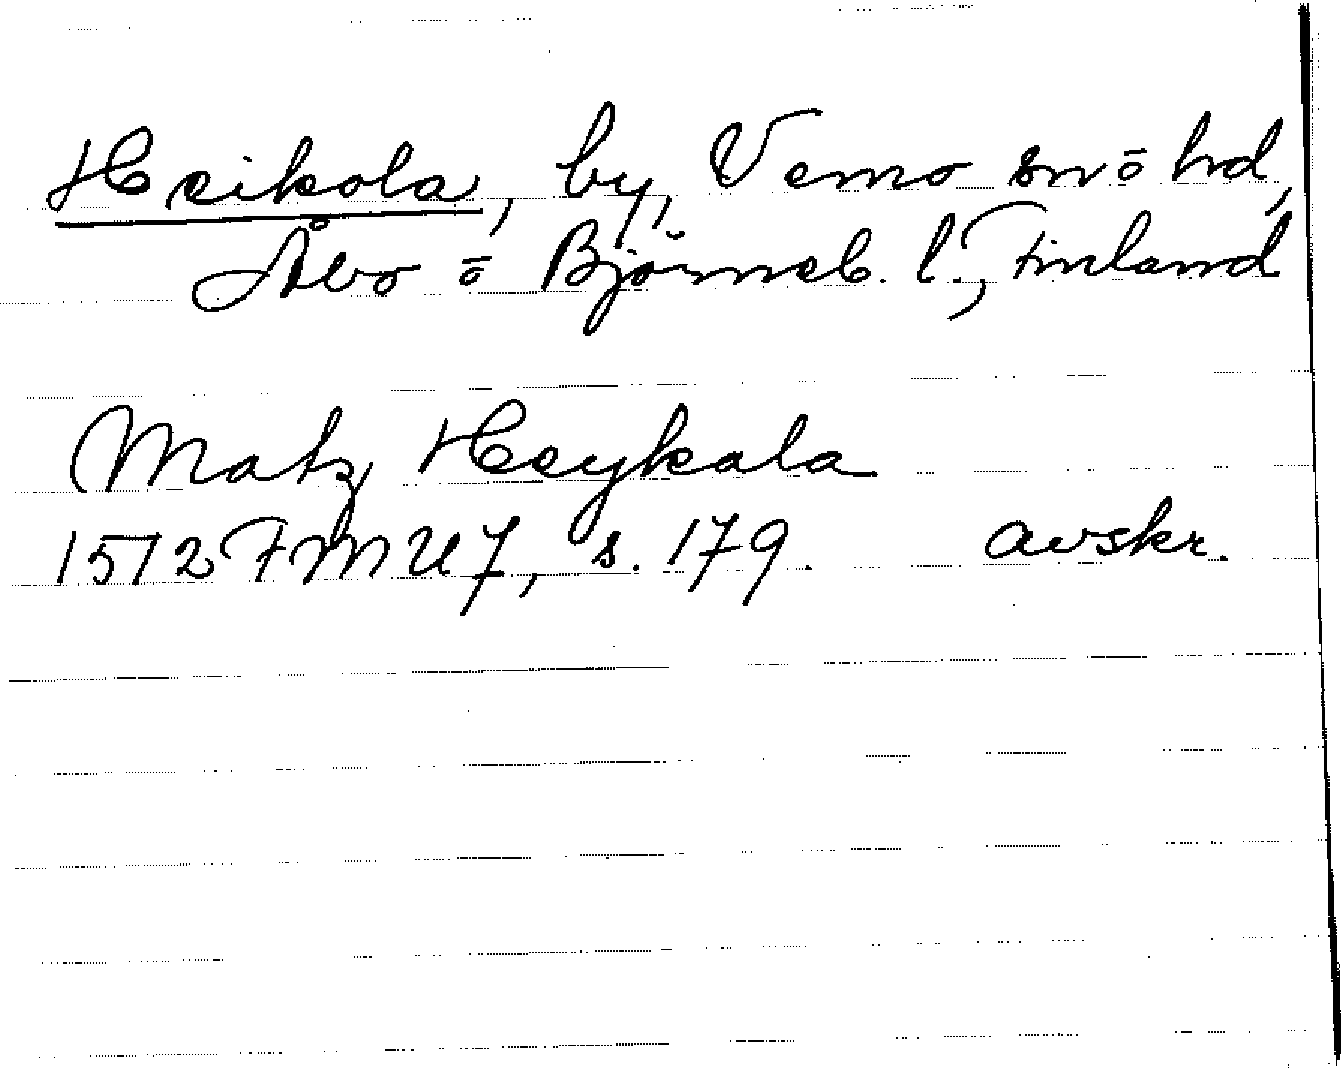 Heikola, by, Vemo sn ō hd,
Åbo ō Björneb. l., Finland
Matz Heykala
1572 FMU 7, s. 179. avskr.